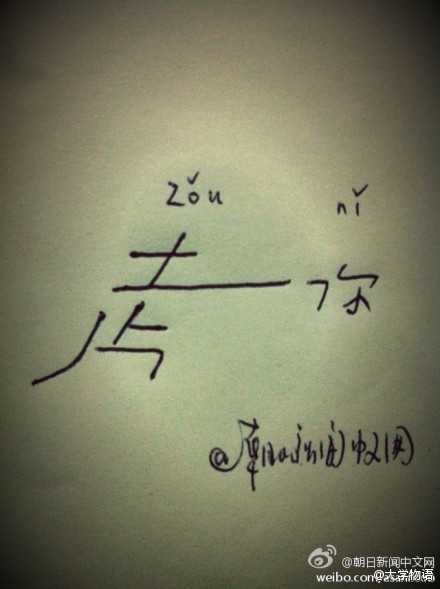 zǒu nǐ
走你
@朝日新闻中文网
@朝日新闻中文网
@大学物语